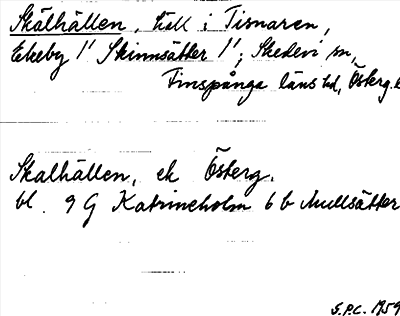 Skälhällen, häll i Tisnaren,
Ekeby 1' Skinnsätter 1'; Skedevi sn,
Finspånga läns hd, Österg. l
Skalhällen, ek Österg.
bl. 9 G Katrineholm 6 b Mullsätter
S.P.C. 1959